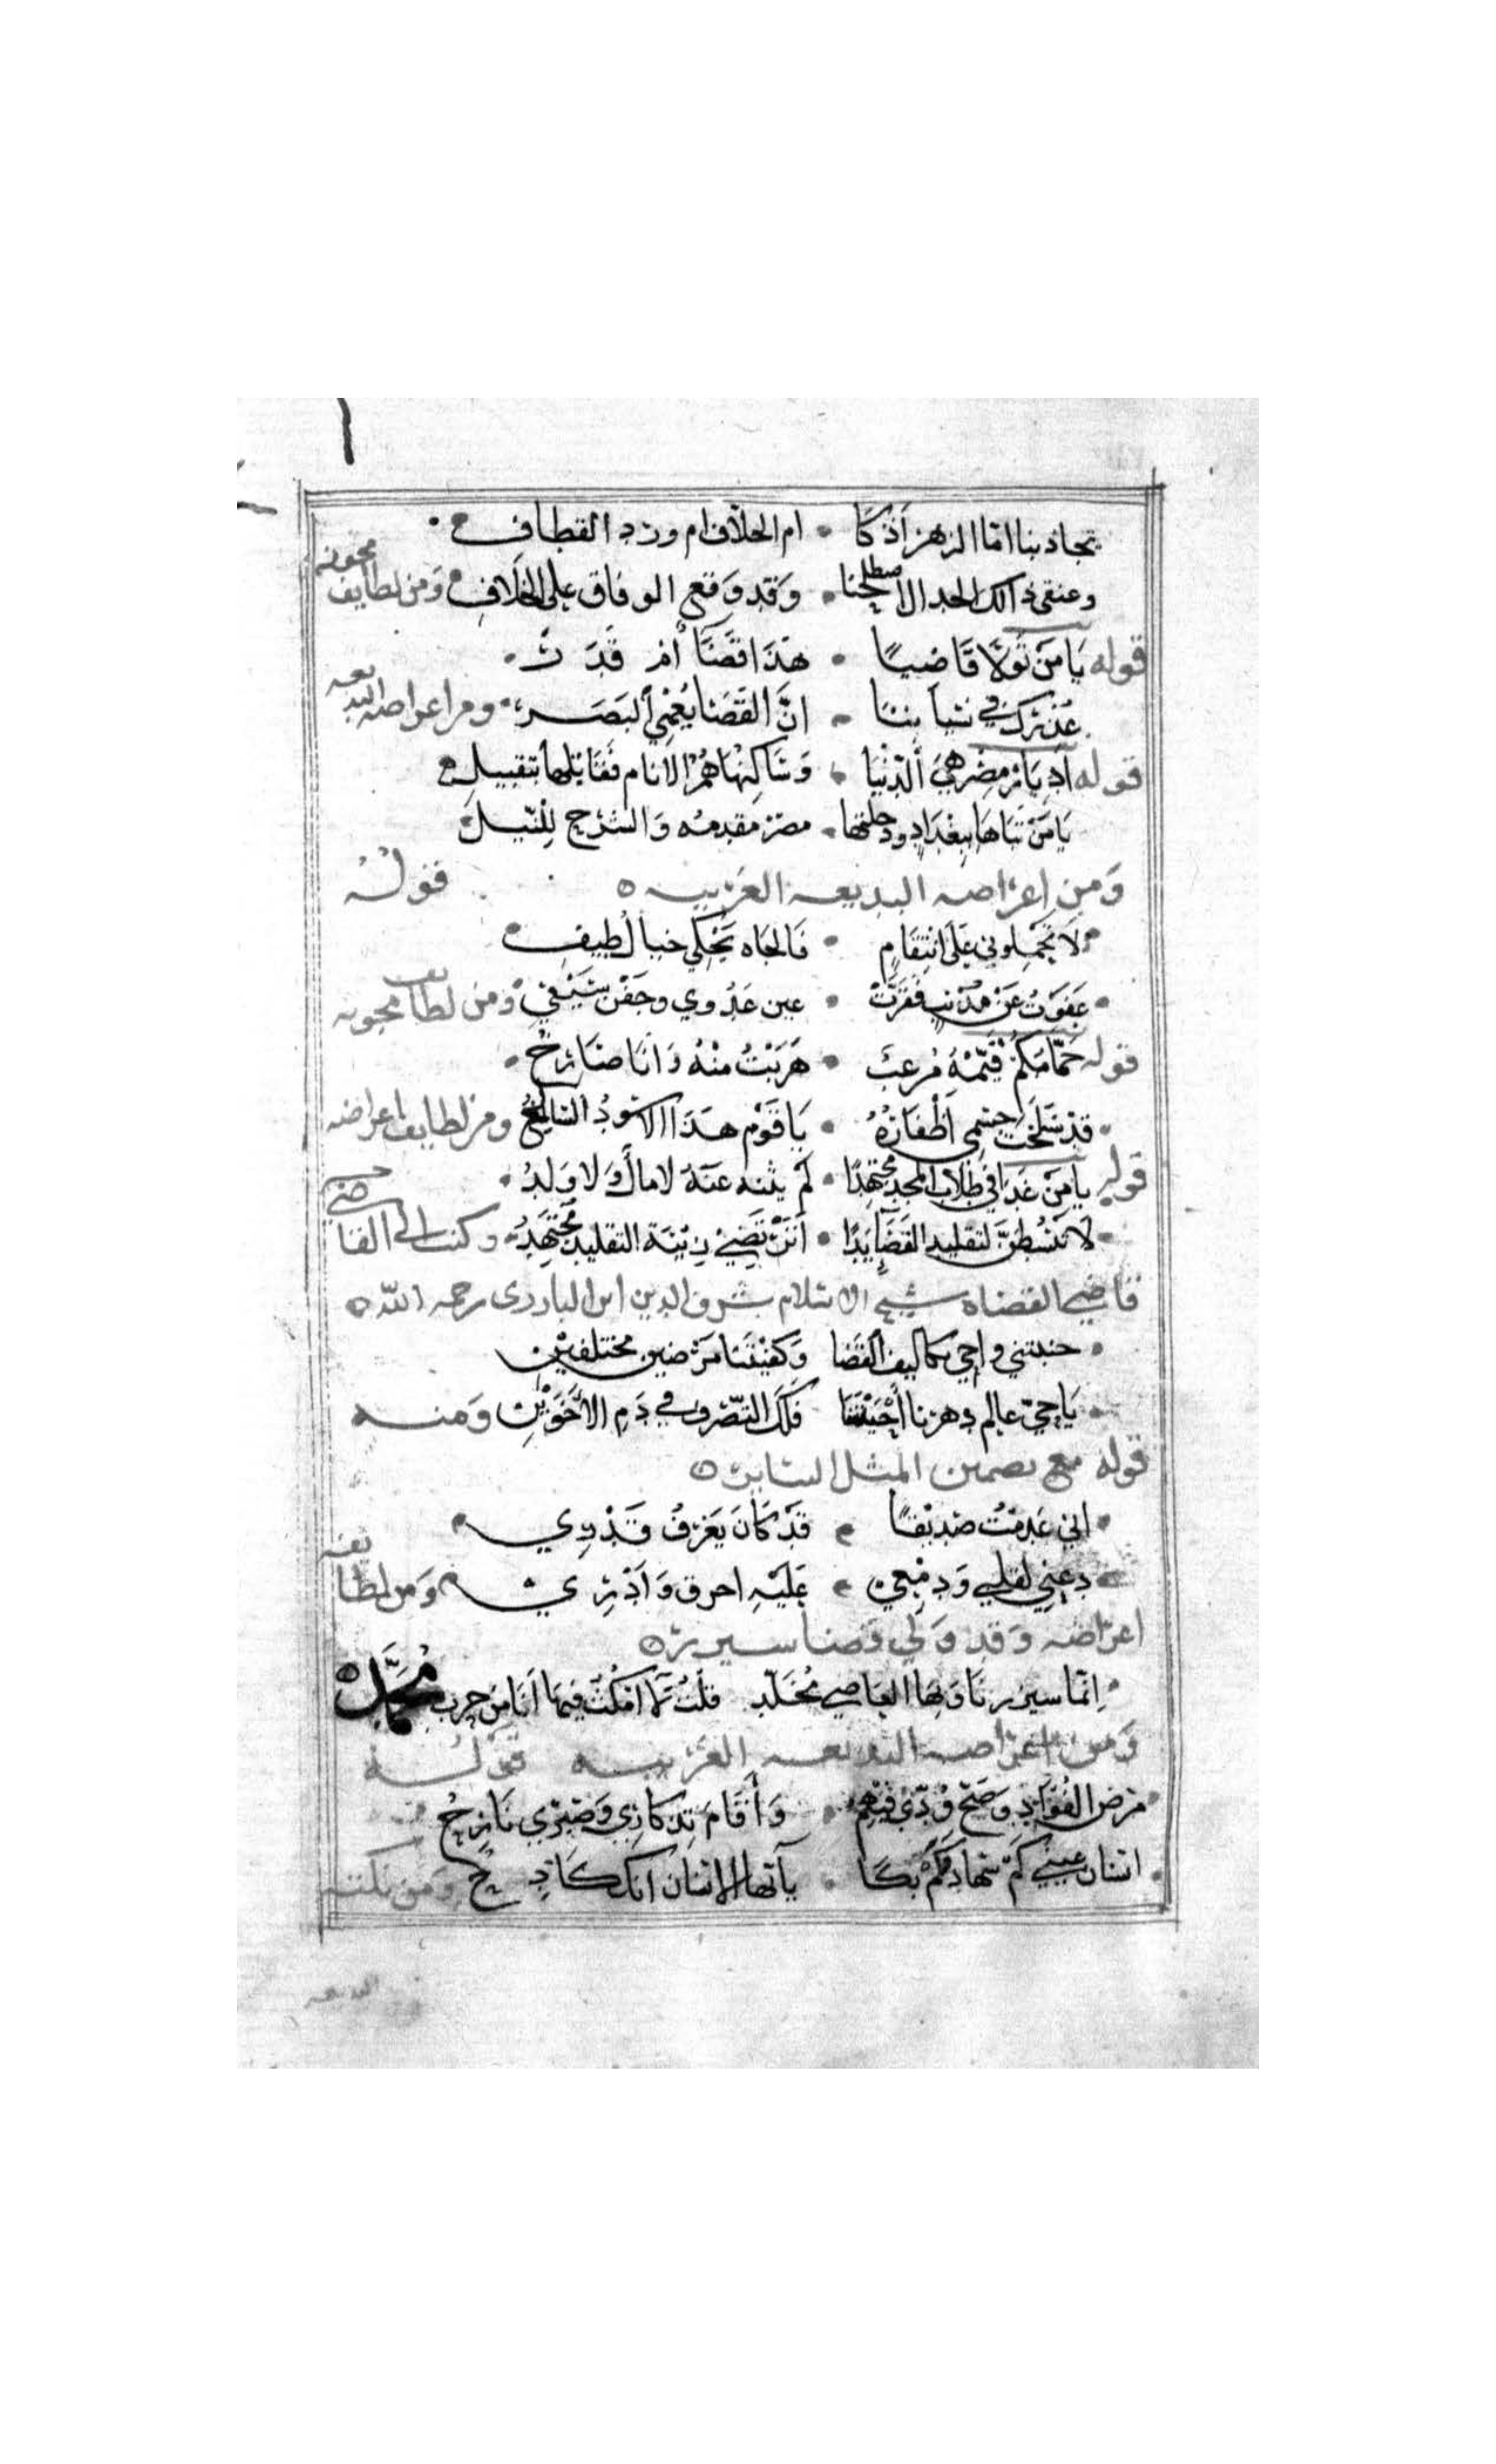 تجادبنا اتما الزهر اذكا • ام الخلاف ام ورد القطاف
وعنقى ذالك الجدال اصطلحنا • وَقَد وَقع الوفاق على الخلاف وَمن لطايف مجونه
قوله يَا مَن تَولّا قَاضِيًا • هَذا قَضَآ أمْ قَدَ ر •
عَذرك في نسياننا • انَّ القَضَا يُعْمِي البَصَر • ومن اغراضه البديعه
قوله اَدِيَار مِصْر هِيَ الدّنْيَا • وَسَاكِنُهَا هُمُ الانَام فَقَابلها بتقبيل
يَا مَنْ تَبَاهَا بِبَغْدَادٍ ودجلتها • مصر مقدمه وَالشرح لِلنّيل
وَمن اغراضه البديعه الغريبه قولُه
لَا تحملوني عَلَى انتِقَامٍ • فَالجَاه يَحْكي خيال طيف
عَفَوتُ عَنْ مُذْنبٍ فقَرَّتْ • عين عَدُوي وجَفْن سَيْفي وَمن لطايف مجونه
قوله حَمَّامكم قَيّمهُ مُرعبٌ • هَرَبْتُ منْهُ وَأنَا صَارخُ •
قَدْ سَلَخَتْ جسْمي اَظْفَارُهُ • يَا قَوْم هَذَا الاسْودُ السَالخُ ومن لطايف اغراضه
قوله يا مَن غدَا في طلاب المجد مجتهدًا • لم يثنه عنَهُ لا مالٌ وَلا وَلدُ •
لا تنشطنَّ لتقليد القَضَا بَدًا • اَنتَ تَرْتضي رتبَة التقليد مُجْتَهِدُ وكتب الى القاضي
قاضي القضاه شيخ الاسلام شرف الدين ابن البارزى رحمه الله
جنبتني واخي تكاليف القَضا وَكفيْتَنا مَرَضين مختلفين
يَا حَيّ عالم دهرنا أَحْيَيْتَنَا فَلَكَ التصّرف في دَمِ الاَخَوَيْن وَمنه
قوله مع تضمين المثل الساير
اني عَدِمْتُ صَدِيْقًا • قَدْ كَانَ يَعْرفُ قَدْرِي
دعني لقلبي وَدمْعي • عَلَيْهِ احرق وَاَذْرِي وَمن لطايف
اغراضه وَقد وَلي قضا سيرر
اِنّما سيرر نَادَ بهَا القاضي مُخَلّد قلتُ لمّا امكنت فيها اَنَا مِن حرب مُحَمَّد
وَمن اغراضه البديعه الغريبه قولُه
مَرض الفُؤَاد وَصَحّ وُدّي فيْهمُ • وَأقَامَ تذكاري وَصَبْري نَازِحُ
انسان عيني كَمْ سُهَاد كَمْ بُكَا • يآ اَيُّها الانسان انك كَادِ حُ وَمن نكته
البديعه